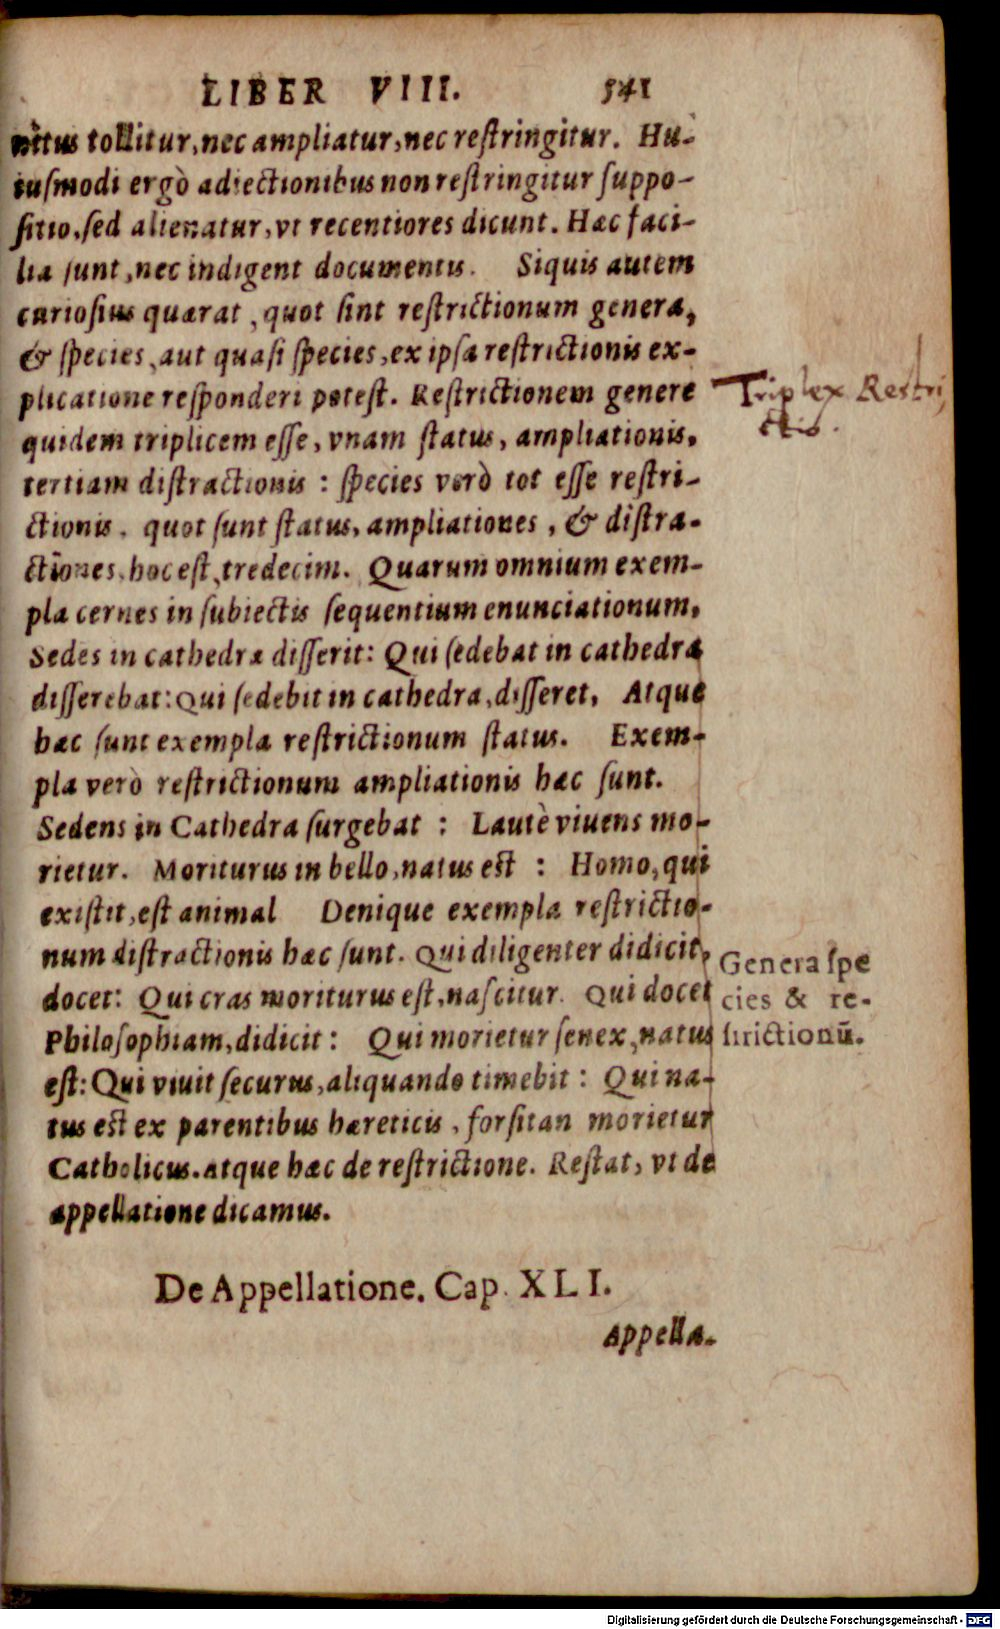 LIBER VIII. 541
nitus tollitur, nec ampliatur, nec reſtringitur. Hu-
iuſmodi ergò adiectionibus non reſtringitur ſuppo-
ſitio, ſed alienatur, vt recentiores dicunt. Hæc faci-
lia ſunt, nec indigent documentis. Siquis autem
curioſius quærat, quot ſint reſtrictionum genera,
& ſpecies, aut quaſi ſpecies, ex ipſa reſtrictionis ex-
plicatione reſponderi poteſt. Reſtrictionem genere
quidem triplicem eſſe, vnam ſtatus, ampliationis,
tertiam diſtractionis: ſpecies verò tot eſſe reſtri-
ctionis, quot ſunt ſtatus, ampliationes, & diſtra-
ctiones, hoc eſt, tredecim. Quarum omnium exem-
pla cernes in ſubiectis ſequentium enunciationum,
Sedes in cathedra diſſerit: Qui ſedebat in cathedra
diſſerebat: Qui ſedebit in cathedra, diſſeret, Atque
hæc ſunt exempla reſtrictionum ſtatus. Exem-
pla verò reſtrictionum ampliationis hæc ſunt.
Sedens in Cathedra ſurgebat: Lautè viuens mo-
rietur. Moriturus in bello, natus eſt: Homo, qui
exiſtit, eſt animal Denique exempla reſtrictio-
num diſtractionis hæc ſunt. Qui diligenter didicit,
docet: Qui cras moriturus eſt, naſcitur. Qui docet
Philoſophiam, didicit: Qui morietur ſenex, natus
eſt: Qui viuit ſecurus, aliquando timebit: Qui na-
tus eſt ex parentibus hæreticis, forſitan morietur
Catholicus. Atque hæc de reſtrictione. Reſtat, vt de
appellatione dicamus.
Triplex Restri
ctio.
Genera ſpe
cies & re-
ſtrictionũ.
De Appellatione. Cap. XLI.
Appella-
Digitalisierung gefördert durch die Deutsche Forschungsgemeinschaft - DFG